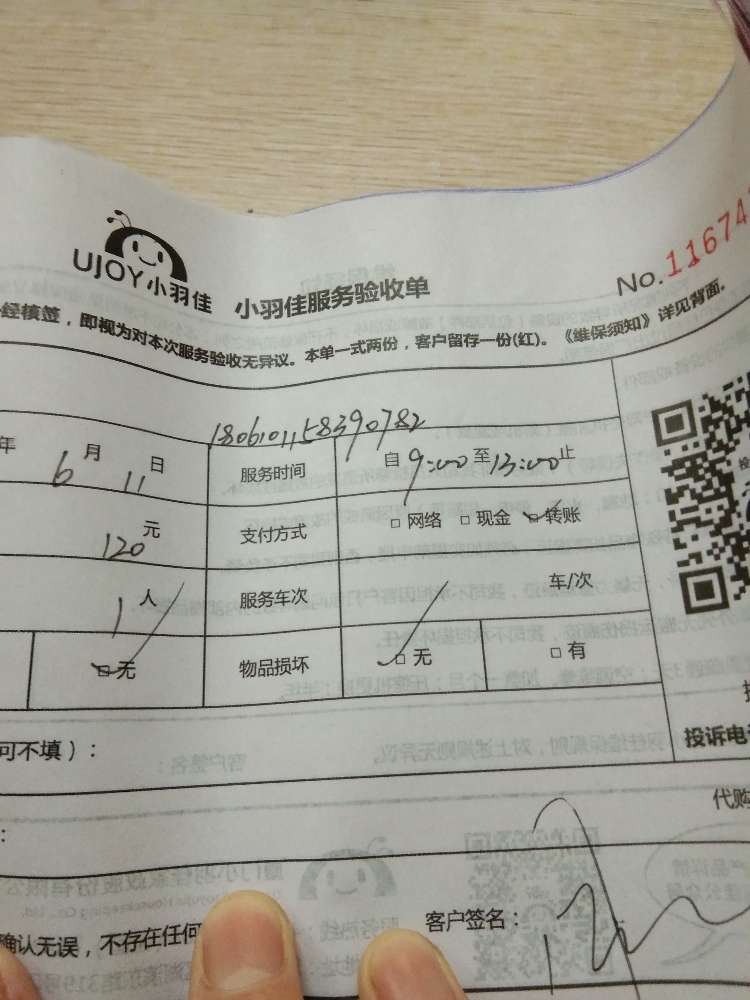 UJOY小羽佳
小羽佳服务验收单
No.11674
经核签，即视为对本次服务验收无异议。本单一式两份，客户留存一份(红)。《维保须知》详见背面。
1806101158390782
年 6 月 11 日 服务时间 自 9:00 至 13:00 止
120 元 支付方式 □ 网络 □ 现金 □ 转账
1 人 服务车次 车/次
□ 无 物品损坏 □ 无 □ 有
可不填）：
投诉电
代购
：
确认无误，不存在任何
客户签名：